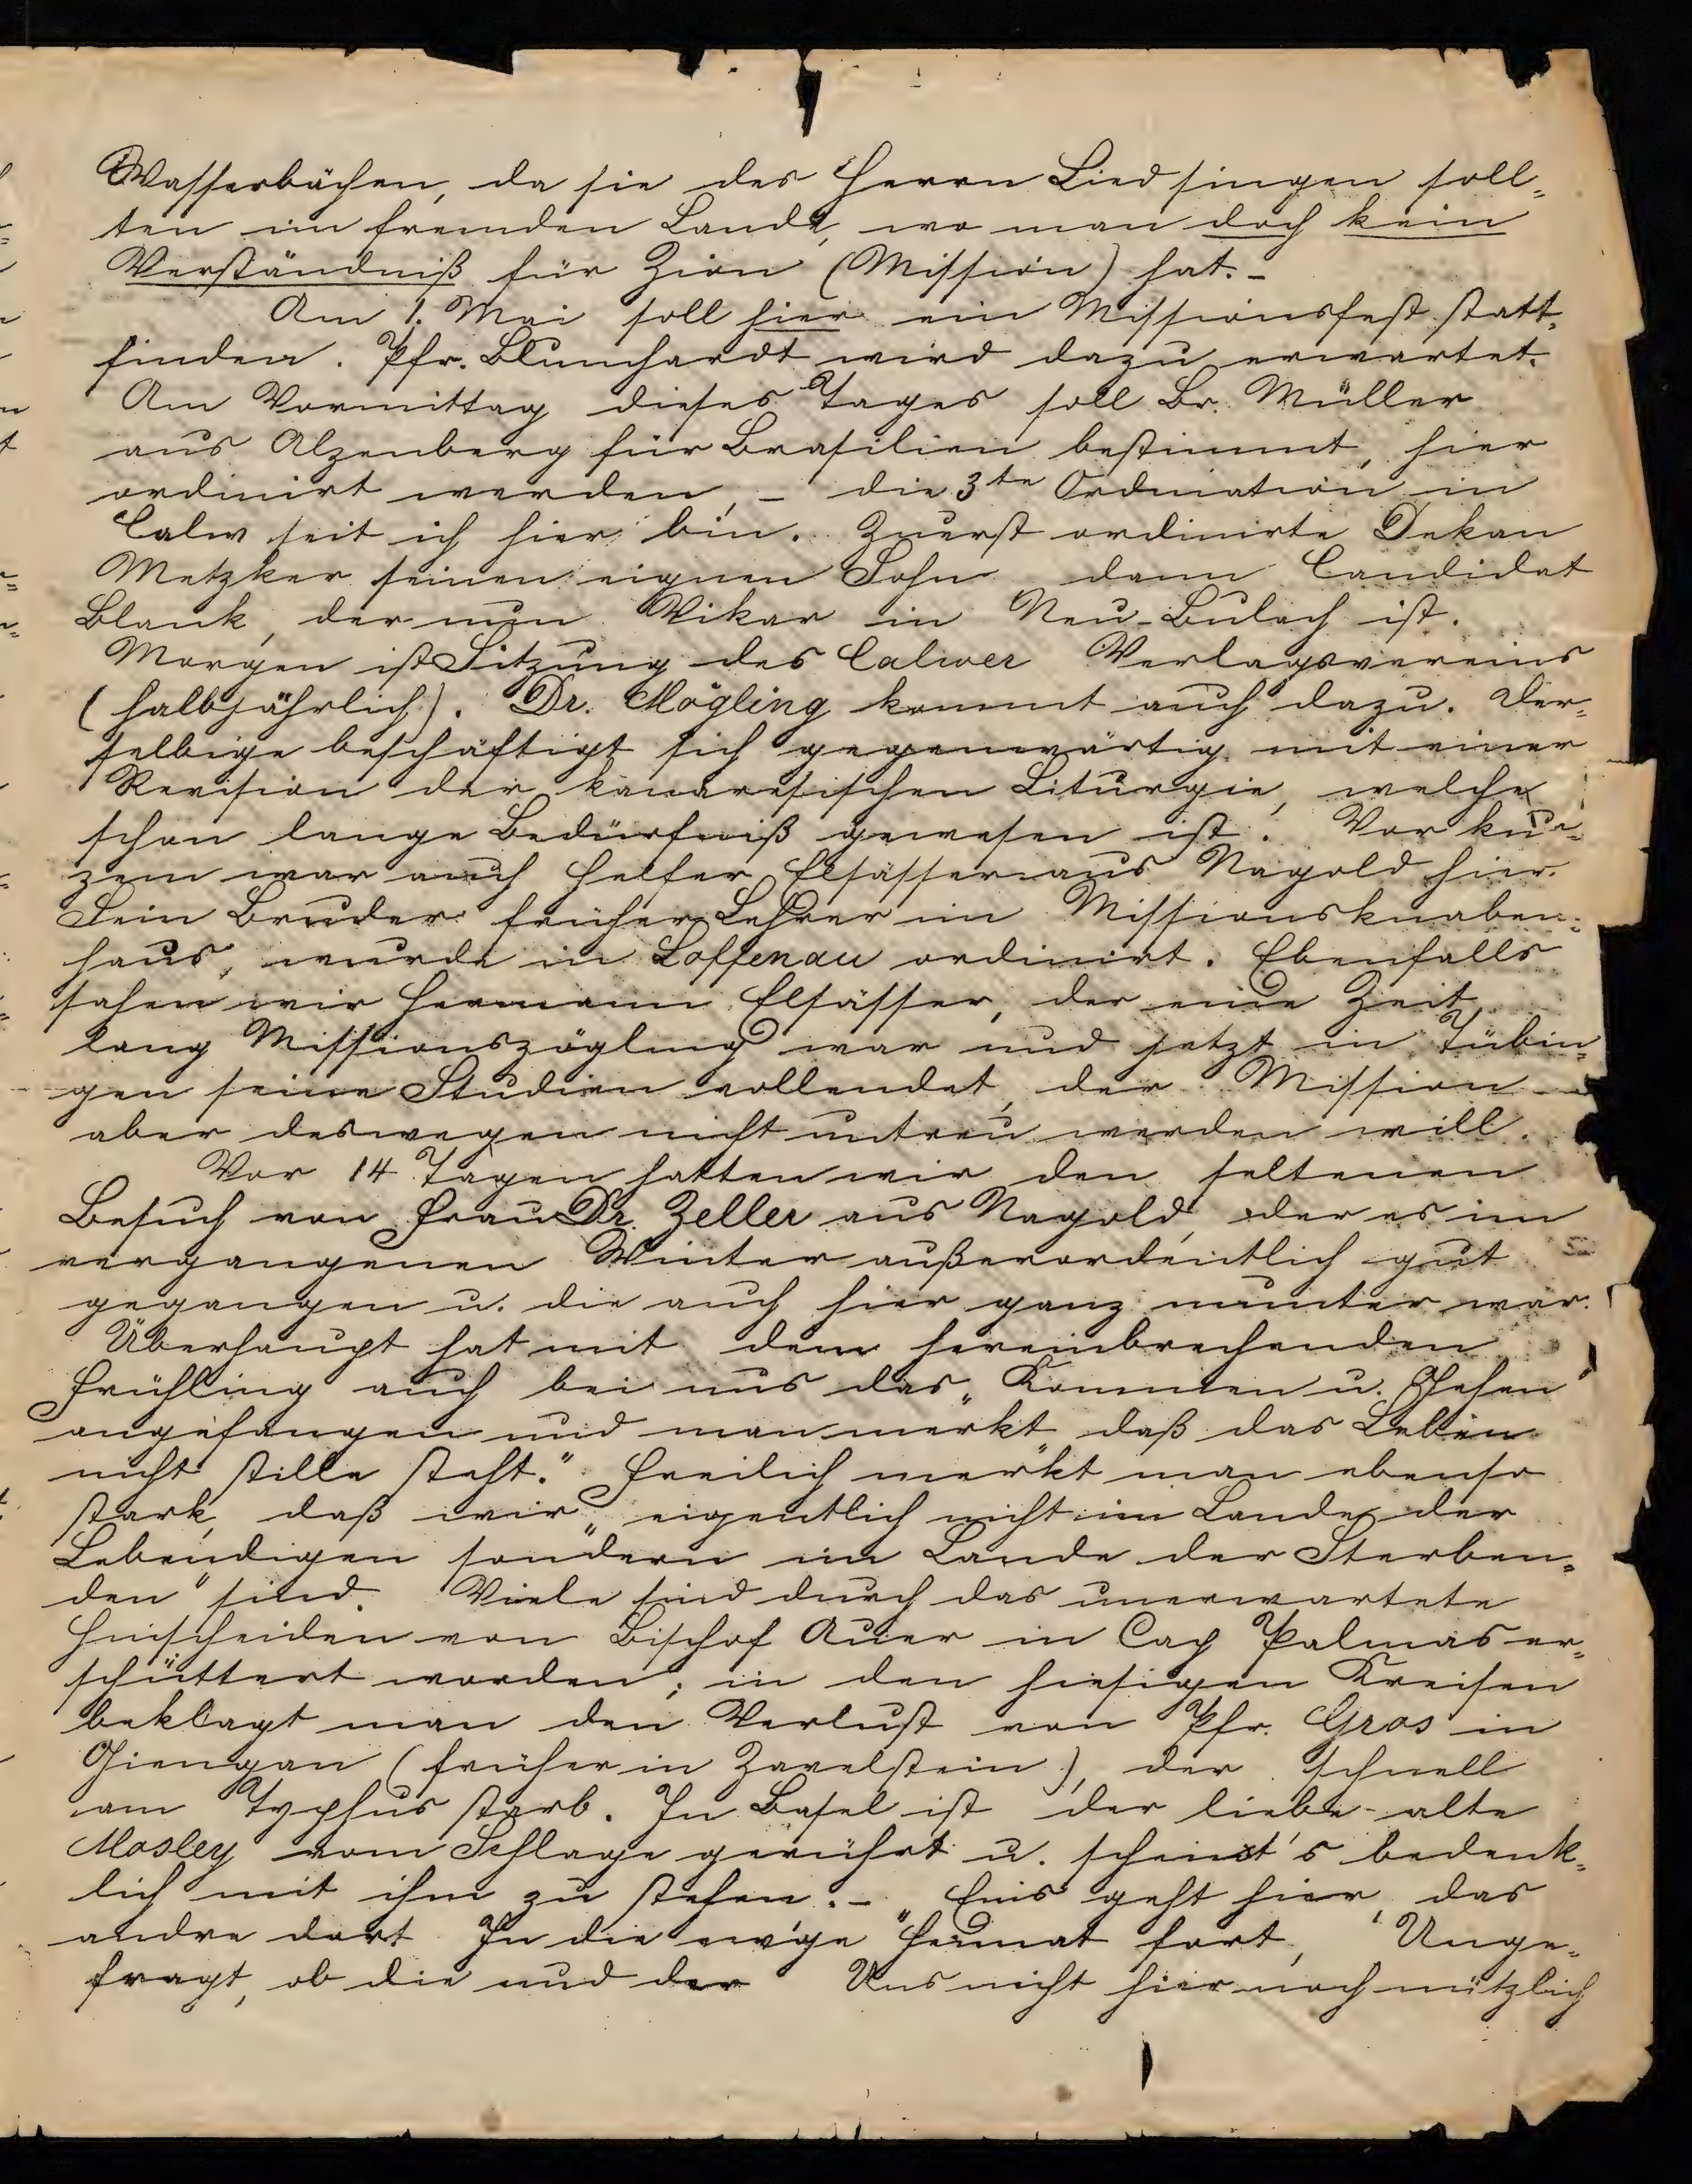 Wasserbächen, da sie des Herrn Lied singen soll-
ten im fremden Lande, wo man doch kein
Verständniß für Zion (Mission) hat. -
Am 1. Mai soll hier ein Missionsfest statt-
finden. Pfr. Blumhardt wird dazu erwartet.
Am Vormittag dieses Tages soll Br. Müller
aus Alzenberg für Brasilien bestimmt, hier
ordinirt werden, - die 3te Ordination in
Calw seit ich hier bin. Zuerst ordinirte Dekan
Metzker seinen eignen Sohn dann Candidat
Blank, der nun Vikar in Neu-Bulach ist.
Morgen ist Sitzung des Calwer Verlagsvereins
(halbjährlich). Dr. Mögling kommt auch dazu. Der-
selbige beschäftigt sich gegenwärtig mit einer
Revision der kanaresischen Liturgie, welche
schon lange Bedürfniß gewesen ist. Vor kur-
zem war auch Helfer Elsässer aus Nagold hier.
Sein Bruder früher Lehrer im Missionsknaben-
haus, wurde in Loffenau ordinirt. Ebenfalls
sahen wir Hermann Elsässer, der eine Zeit
lang Missionszögling war und jetzt in Tübin-
gen seine Studien vollendet, der Mission
aber deswegen nicht untreu werden will.
Vor 14 Tagen hatten wir den seltenen
Besuch von Frau Dr. Zeller aus Nagold, der es im
vergangenen Winter außerordentlich gut
gegangen u. die auch hier ganz munter war.
Überhaupt hat mit dem hereinbrechenden
Frühling auch bei uns das „Kommen u. Gehen"
angefangen und man merkt „daß das Leben
nicht stille steht." Freilich merkt man ebenso
stark, daß wir „eigentlich nicht im Lande der
Lebendigen sondern im Lande der Sterben-
den" sind. Viele sind durch das unerwartete
Hinscheiden von Bischof Auer in Cap Palmas er-
schüttert worden; in den hiesigen Kreisen
beklagt man den Verlust von Pfr. Gros in
Giengan (früher in Zavelstein), der schnell
am Typhus starb. In Basel ist der liebe alte
Mosley vom Schlage gerührt u. scheint's bedenk-
lich mit ihm zu stehen. - „Eins geht hier, das
andre dort In die ew'ge Heimat fort, Unge-
fragt, ob die und der Uns nicht hier noch nützlich